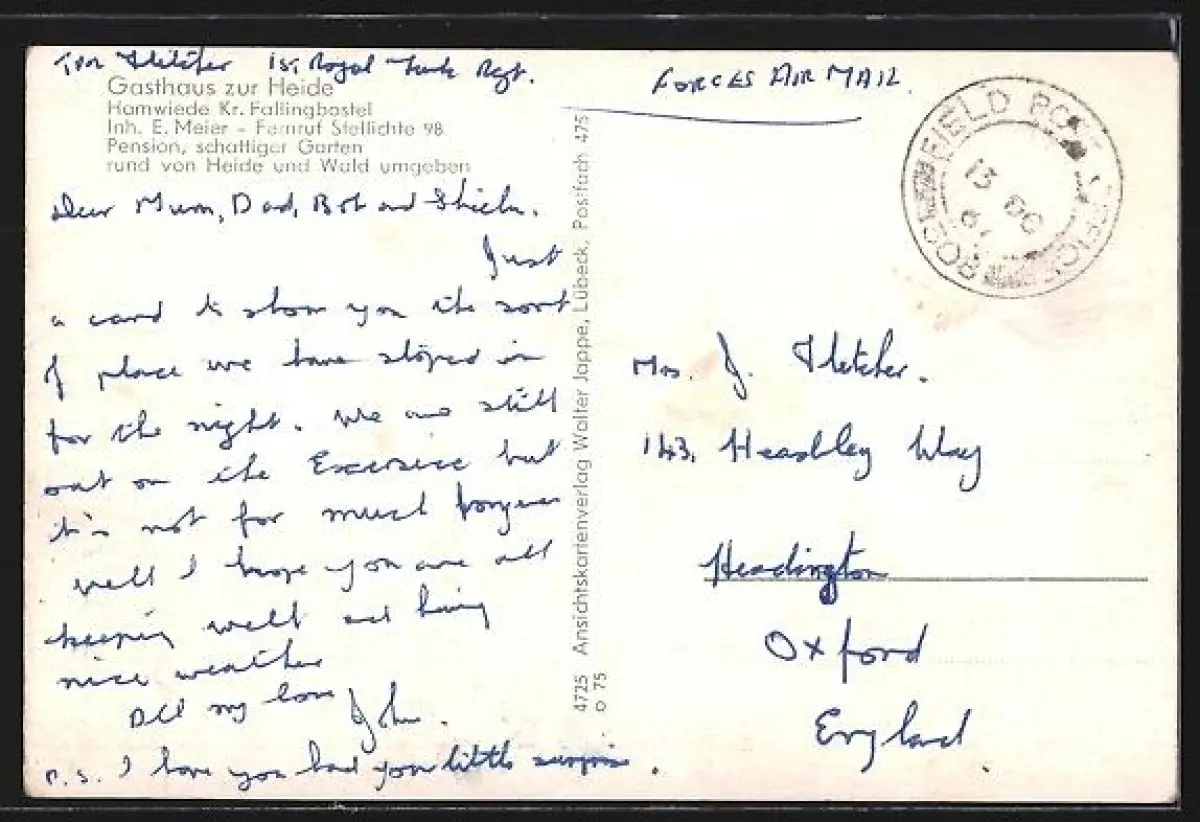 Tpr Fletcher 1st Royal Tank Rgt.
FORCES AIR MAIL.
Gasthaus zur Heide
Hamwiede Kr. Fallingbostel
Inh. E. Meier - Fernruf Stellichte 98
Pension, schattiger Garten
rund von Heide und Wald umgeben
Dear Mum, Dad, Bob and Sheila.
Just
a card to show you the sort
of place we have stoped in
for the night. We are still
out on the Excersice but
it's not for much
well I hope you are all
keeping well and having
nice weather
All my love
John.
P.S. I hope you had your little surprise.
4725 Ansichtskartenverlag Walter Jappe, Lübeck, Postfach 475
o 75
FIELD POST OFFICE
13 OC
Mrs. J. Fletcher.
143, Headley Way
Headington
Oxford
England.